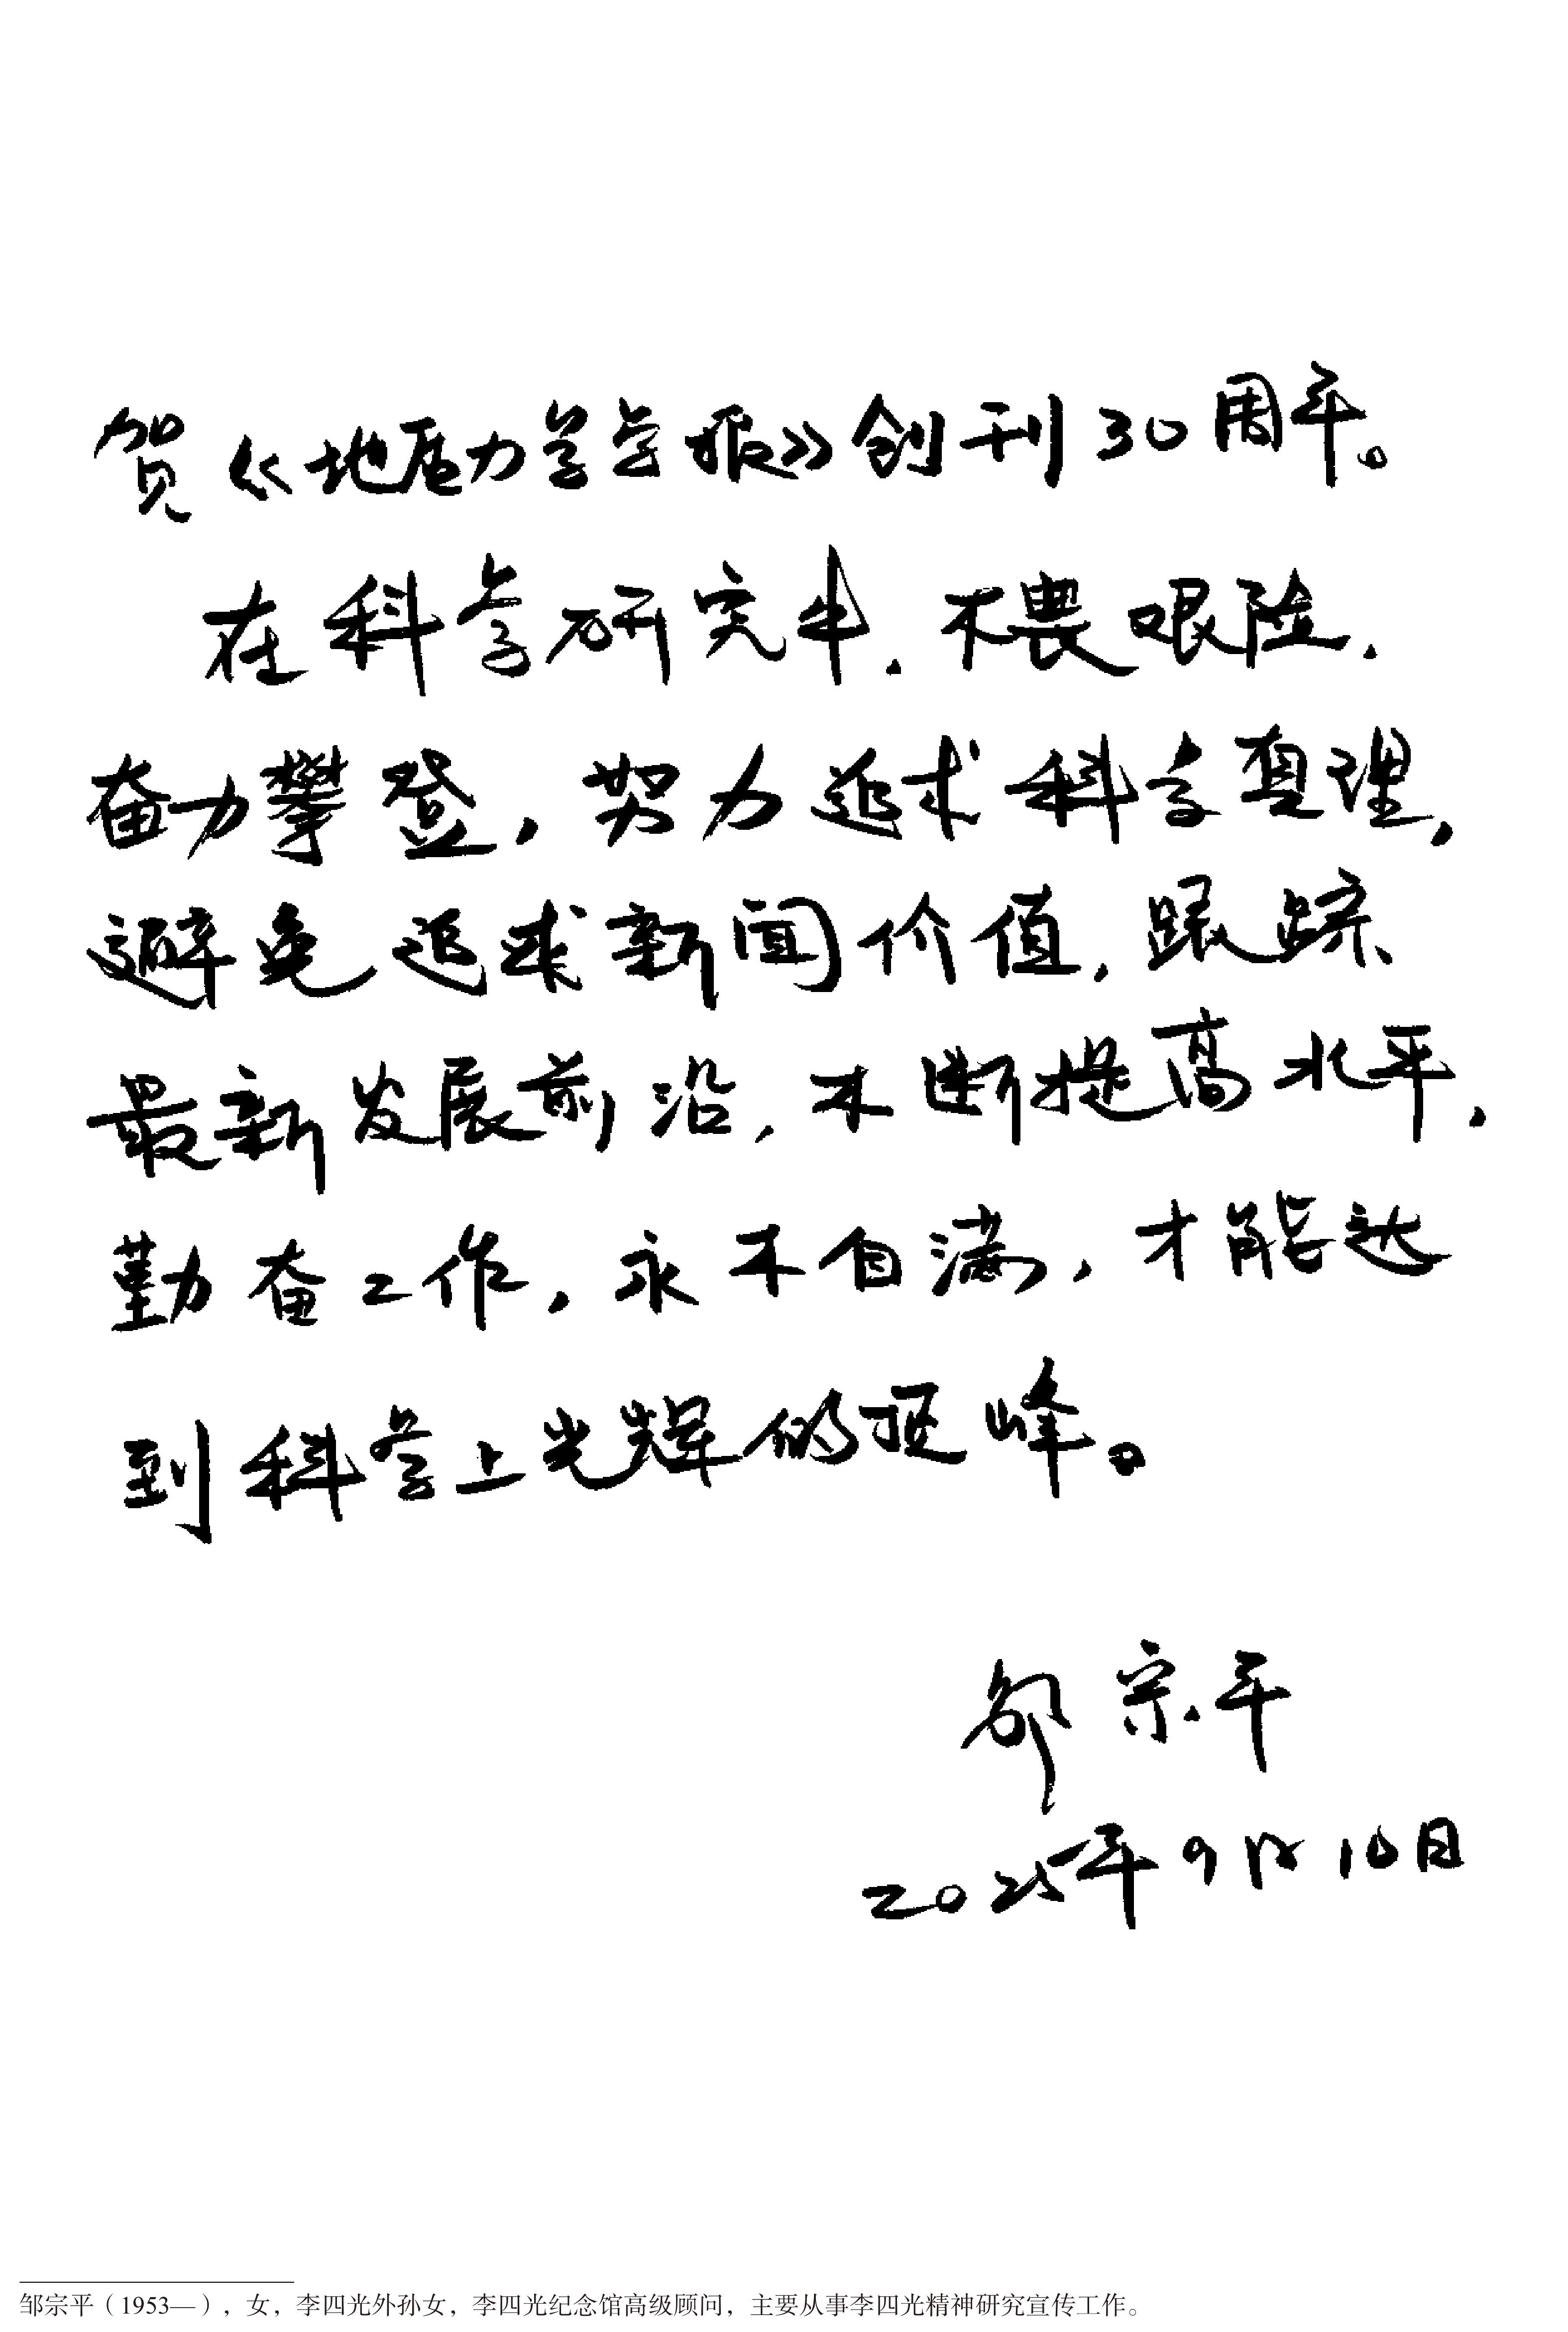 贺《地质力学学报》创刊30周年。
在科学研究中，不畏艰险，
奋力攀登，努力追求科学真理，
避免追求新闻价值，跟踪
最新发展前沿，不断提高水平，
勤奋工作，永不自满，才能达
到科学上光辉的顶峰。
邹宗平
2025年9月10日
邹宗平（1953—），女，李四光外孙女，李四光纪念馆高级顾问，主要从事李四光精神研究宣传工作。